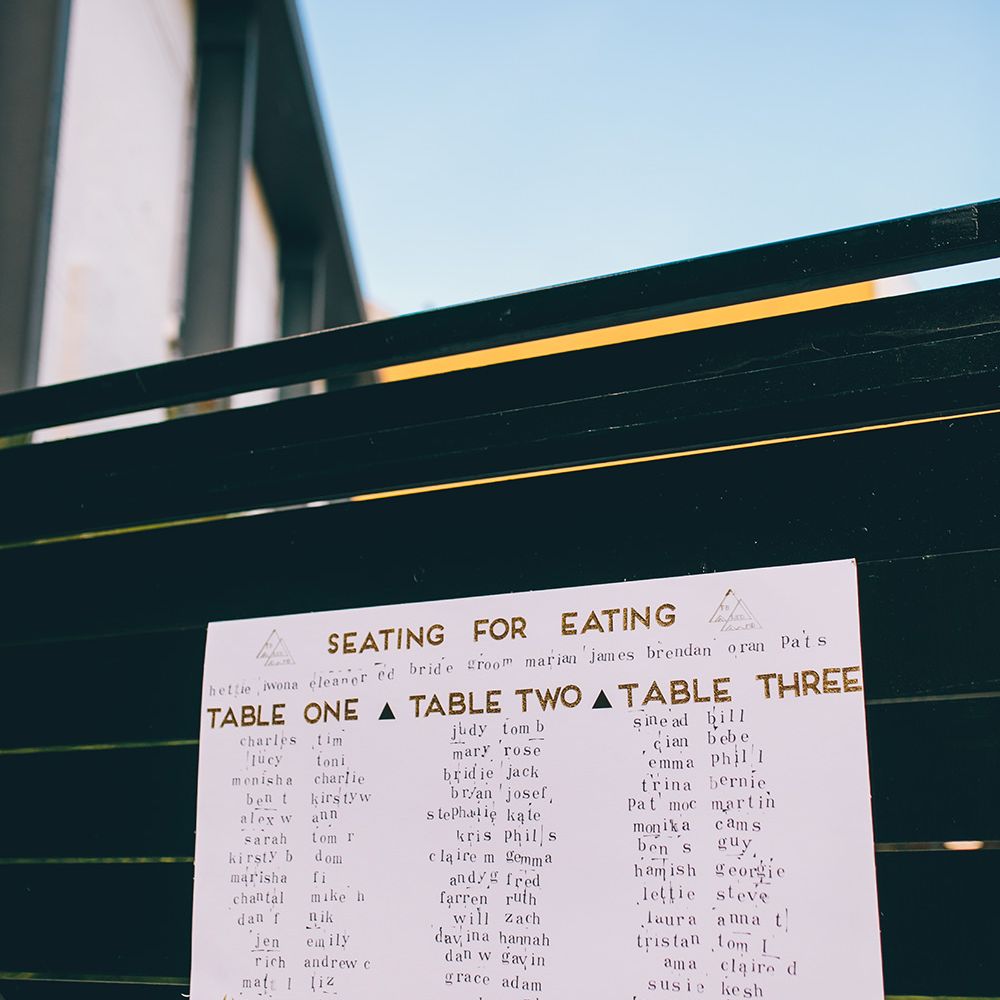 SEATING FOR EATING
hettie iwona eleanor ed bride groom marian james brendan oran pat s
TABLE ONE ▲ TABLE TWO ▲ TABLE THREE
charles tim
lucy toni
monisha charlie
ben t kirsty w
alex w ann
sarah tom r
kirsty b dom
marisha fi
chantal mike h
dan f nik
jen emily
rich andrew c
matt l liz
judy tom b
mary rose
bridie jack
bryan josef
stephanie kate
kris phil s
claire m gemma
andy g fred
farren ruth
will zach
davina hannah
dan w gavin
grace adam
sinead bill
cian bebe
emma phil l
trina bernie
pat moc martin
monika cams
ben s guy
hamish georgie
lettie steve
laura anna t
tristan tom l
ama claire d
susie kesh